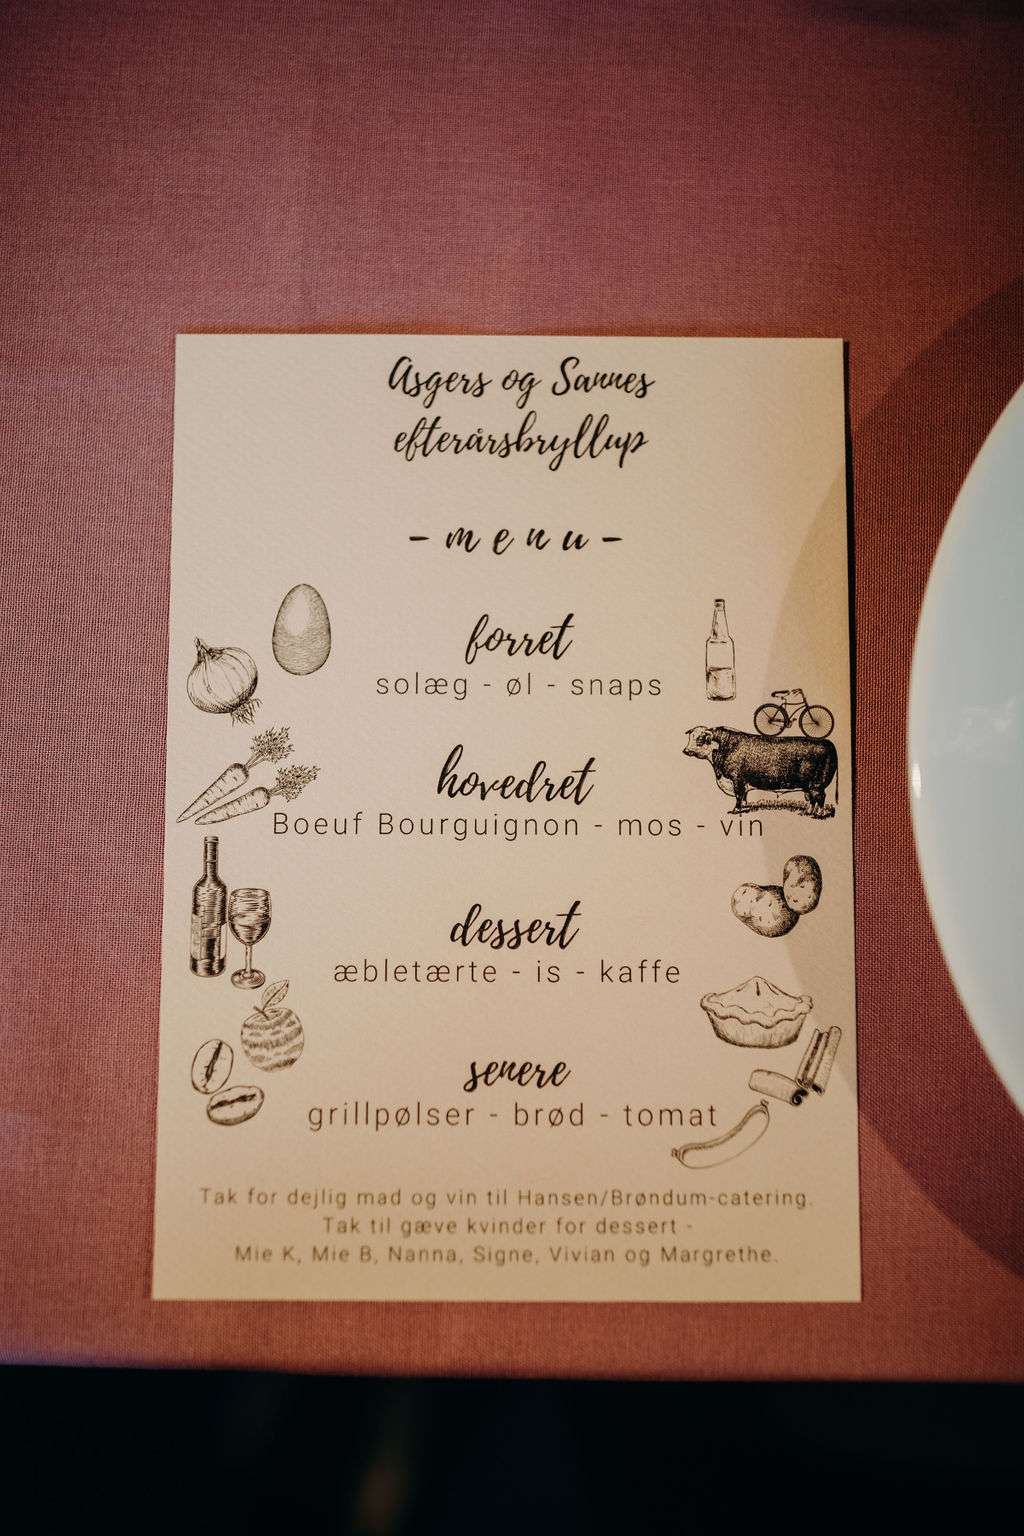 Asgers og Sannes
efterårsbryllup
- m e n u -
forret
solæg - øl - snaps
hovedret
Boeuf Bourguignon - mos - vin
dessert
æbletærte - is - kaffe
senere
grillpølser - brød - tomat
Tak for dejlig mad og vin til Hansen/Brøndum-catering.
Tak til gæve kvinder for dessert -
Mie K, Mie B, Nanna, Signe, Vivian og Margrethe.